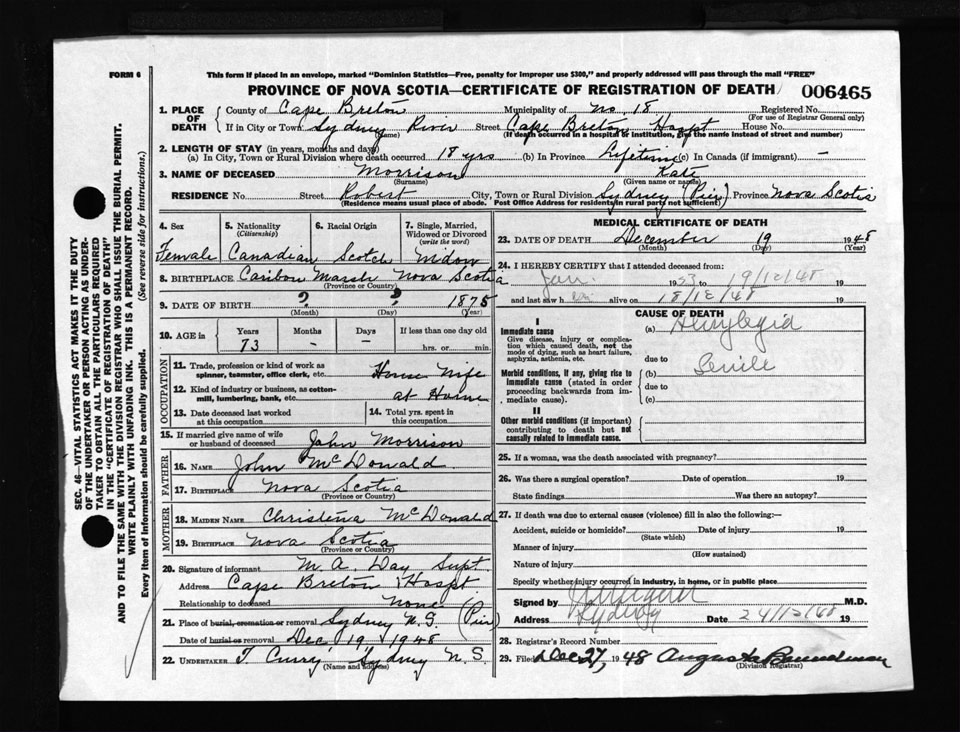 FORM 6
This form if placed in an envelope, marked "Dominion Statistics—Free, penalty for improper use $300," and properly addressed will pass through the mail "FREE"
PROVINCE OF NOVA SCOTIA—CERTIFICATE OF REGISTRATION OF DEATH 006465
SEC. 46—VITAL STATISTICS ACT MAKES IT THE DUTY
OF THE UNDERTAKER OR PERSON ACTING AS UNDER-
TAKER TO OBTAIN ALL THE PARTICULARS REQUIRED
IN THE "CERTIFICATE OF REGISTRATION OF DEATH"
AND TO FILE THE SAME WITH THE DIVISION REGISTRAR WHO SHALL ISSUE THE BURIAL PERMIT.
WRITE PLAINLY WITH UNFADING INK. THIS IS A PERMANENT RECORD.
Every item of information should be carefully supplied. (See reverse side for instructions.)
1. PLACE OF DEATH
County of Cape Breton Municipality of No 18 Registered No.
(For use of Registrar General only)
If in City or Town Sydney River Street Cape Breton Hospt House No.
(Name) (If death occurred in a hospital or institution, give the name instead of street and number)
2. LENGTH OF STAY (in years, months and days)
(a) In City, Town or Rural Division where death occurred 18 yrs (b) In Province Lifetime (c) In Canada (if immigrant) —
3. NAME OF DECEASED Morrison Kate
(Surname) (Given name or names)
RESIDENCE No. Street Robert City, Town or Rural Division Sydney (Pier) Province Nova Scotia
(Residence means usual place of abode. Post Office Address for residents in rural parts not sufficient)
4. Sex Female
5. Nationality (Citizenship) Canadian
6. Racial Origin Scotch
7. Single, Married, Widowed or Divorced (write the word) Widow
8. BIRTHPLACE Caribou Marsh Nova Scotia
(Province or Country)
9. DATE OF BIRTH ? ? 1875
(Month) (Day) (Year)
10. AGE in Years Months Days If less than one day old
73 - - hrs. or min.
OCCUPATION
11. Trade, profession or kind of work as spinner, teamster, office clerk, etc. House Wife
12. Kind of industry or business, as cotton-mill, lumbering, bank, etc. at Home
13. Date deceased last worked at this occupation
14. Total yrs. spent in this occupation
15. If married give name of wife or husband of deceased John Morrison
FATHER
16. NAME John McDonald
17. BIRTHPLACE Nova Scotia
(Province or Country)
MOTHER
18. MAIDEN NAME Christina McDonald
19. BIRTHPLACE Nova Scotia
(Province or Country)
20. Signature of informant M. A. Day Supt
Address Cape Breton Hospt
Relationship to deceased None
21. Place of burial, cremation or removal Sydney N.S. (Pier)
Date of burial or removal Dec 19 1948
22. UNDERTAKER T. Curry Sydney N S
(Name and address)
MEDICAL CERTIFICATE OF DEATH
23. DATE OF DEATH December 19 1948
(Month) (Day) (Year)
24. I HEREBY CERTIFY that I attended deceased from:
Jan. 19 19/12/48 19
and last saw h alive on 18/12/48 19
CAUSE OF DEATH
I
Immediate cause
Give disease, injury or complication which caused death, not the mode of dying, such as heart failure, asphyxia, asthenia, etc.
(a)
due to Senile
Morbid conditions, if any, giving rise to immediate cause (stated in order proceeding backwards from immediate cause).
(b)
due to
(c)
II
Other morbid conditions (if important) contributing to death but not causally related to immediate cause.
25. If a woman, was the death associated with pregnancy?
26. Was there a surgical operation? Date of operation 19
State findings Was there an autopsy?
27. If death was due to external causes (violence) fill in also the following:—
Accident, suicide or homicide? Date of injury 19
(State which)
Manner of injury
(How sustained)
Nature of injury
Specify whether injury occurred in industry, in home, or in public place
Signed by M.D.
Address Sydney Date 24/12/48 19
28. Registrar's Record Number
29. Filed Dec 27, 1948 Augusta
(Division Registrar)